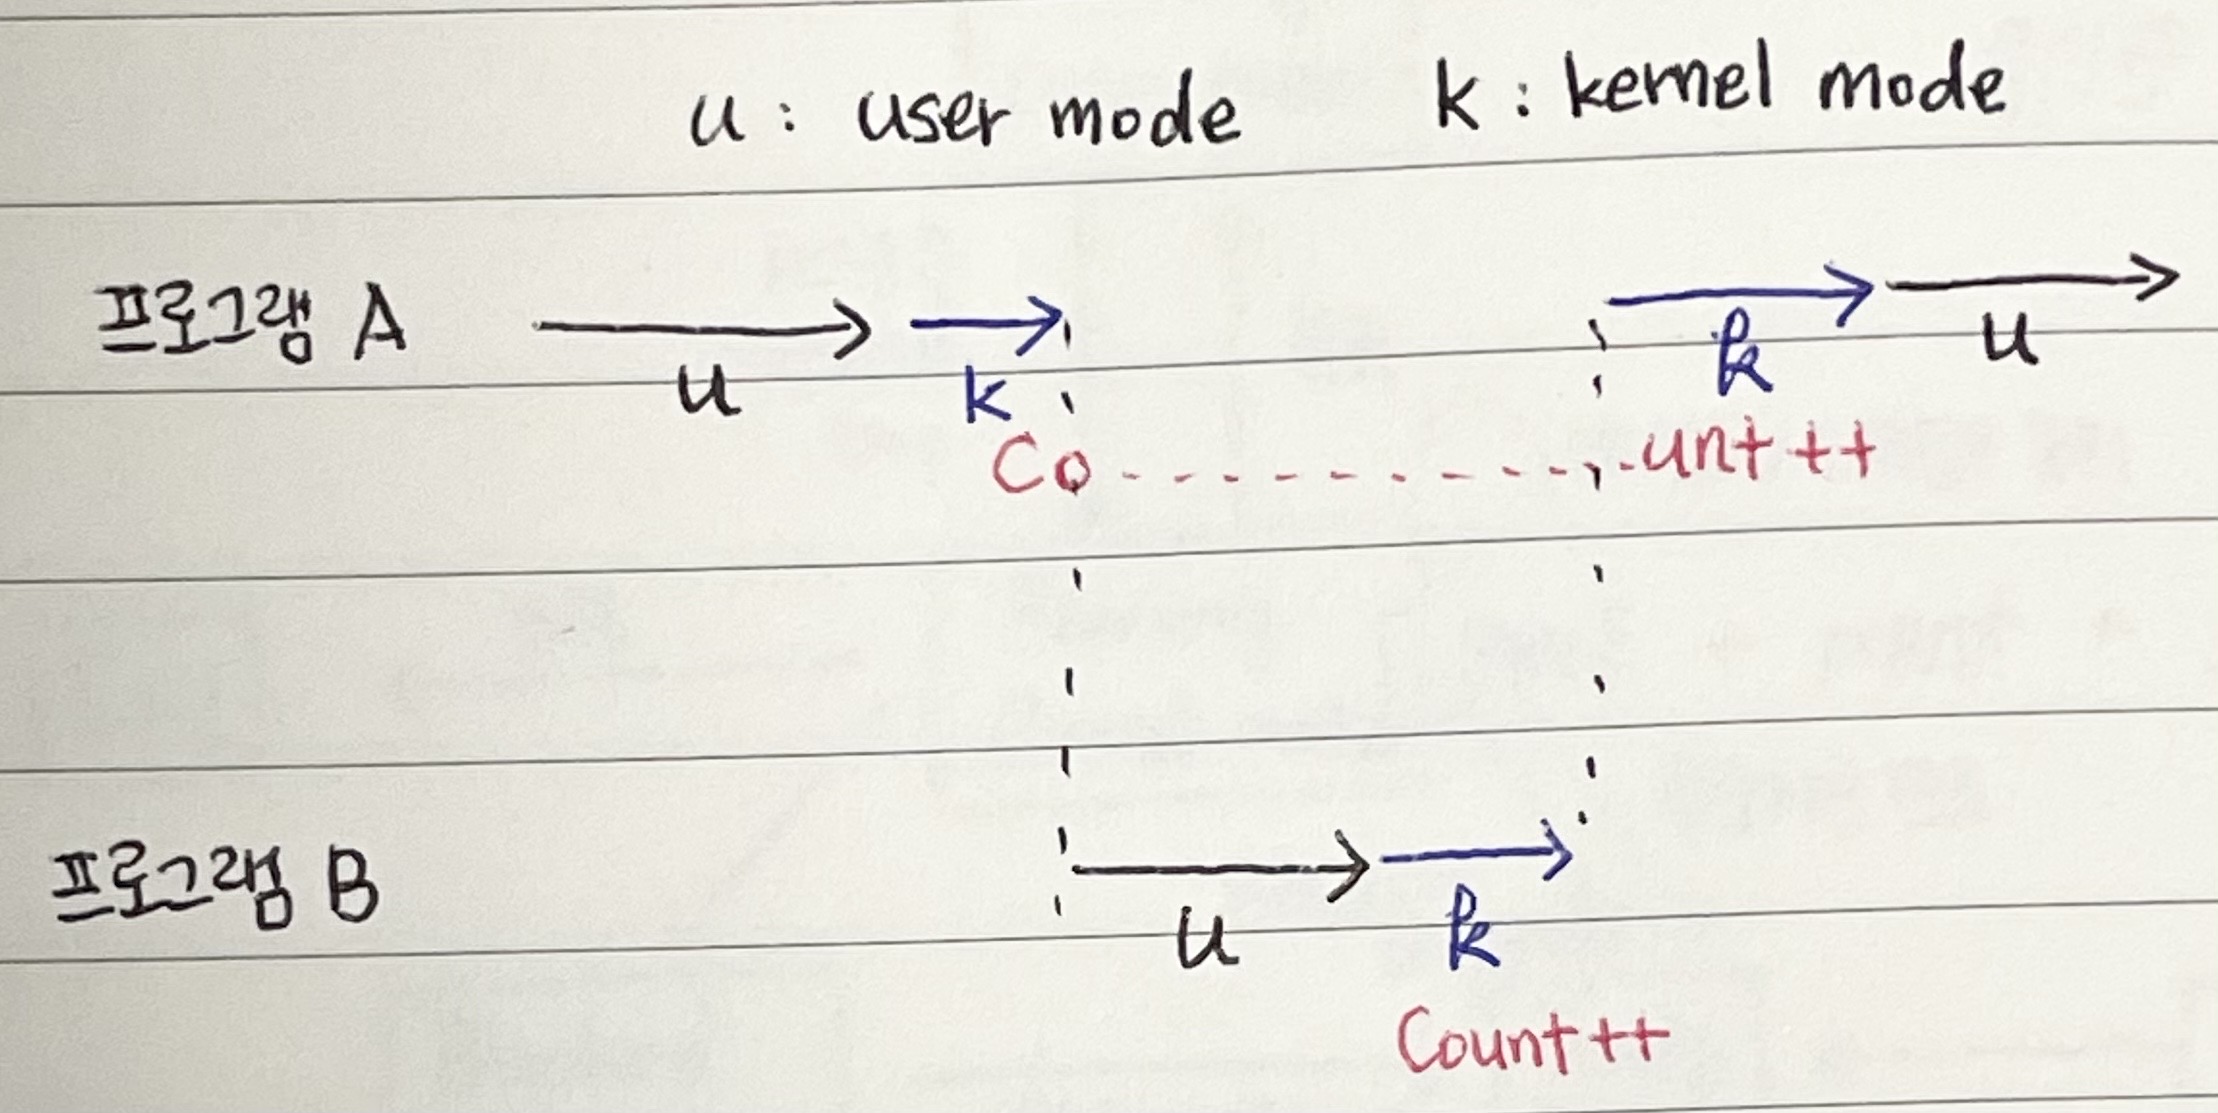 u : user mode k : kernel mode
프로그램 A
u k k u
Co unt ++
프로그램 B
u k
Count ++